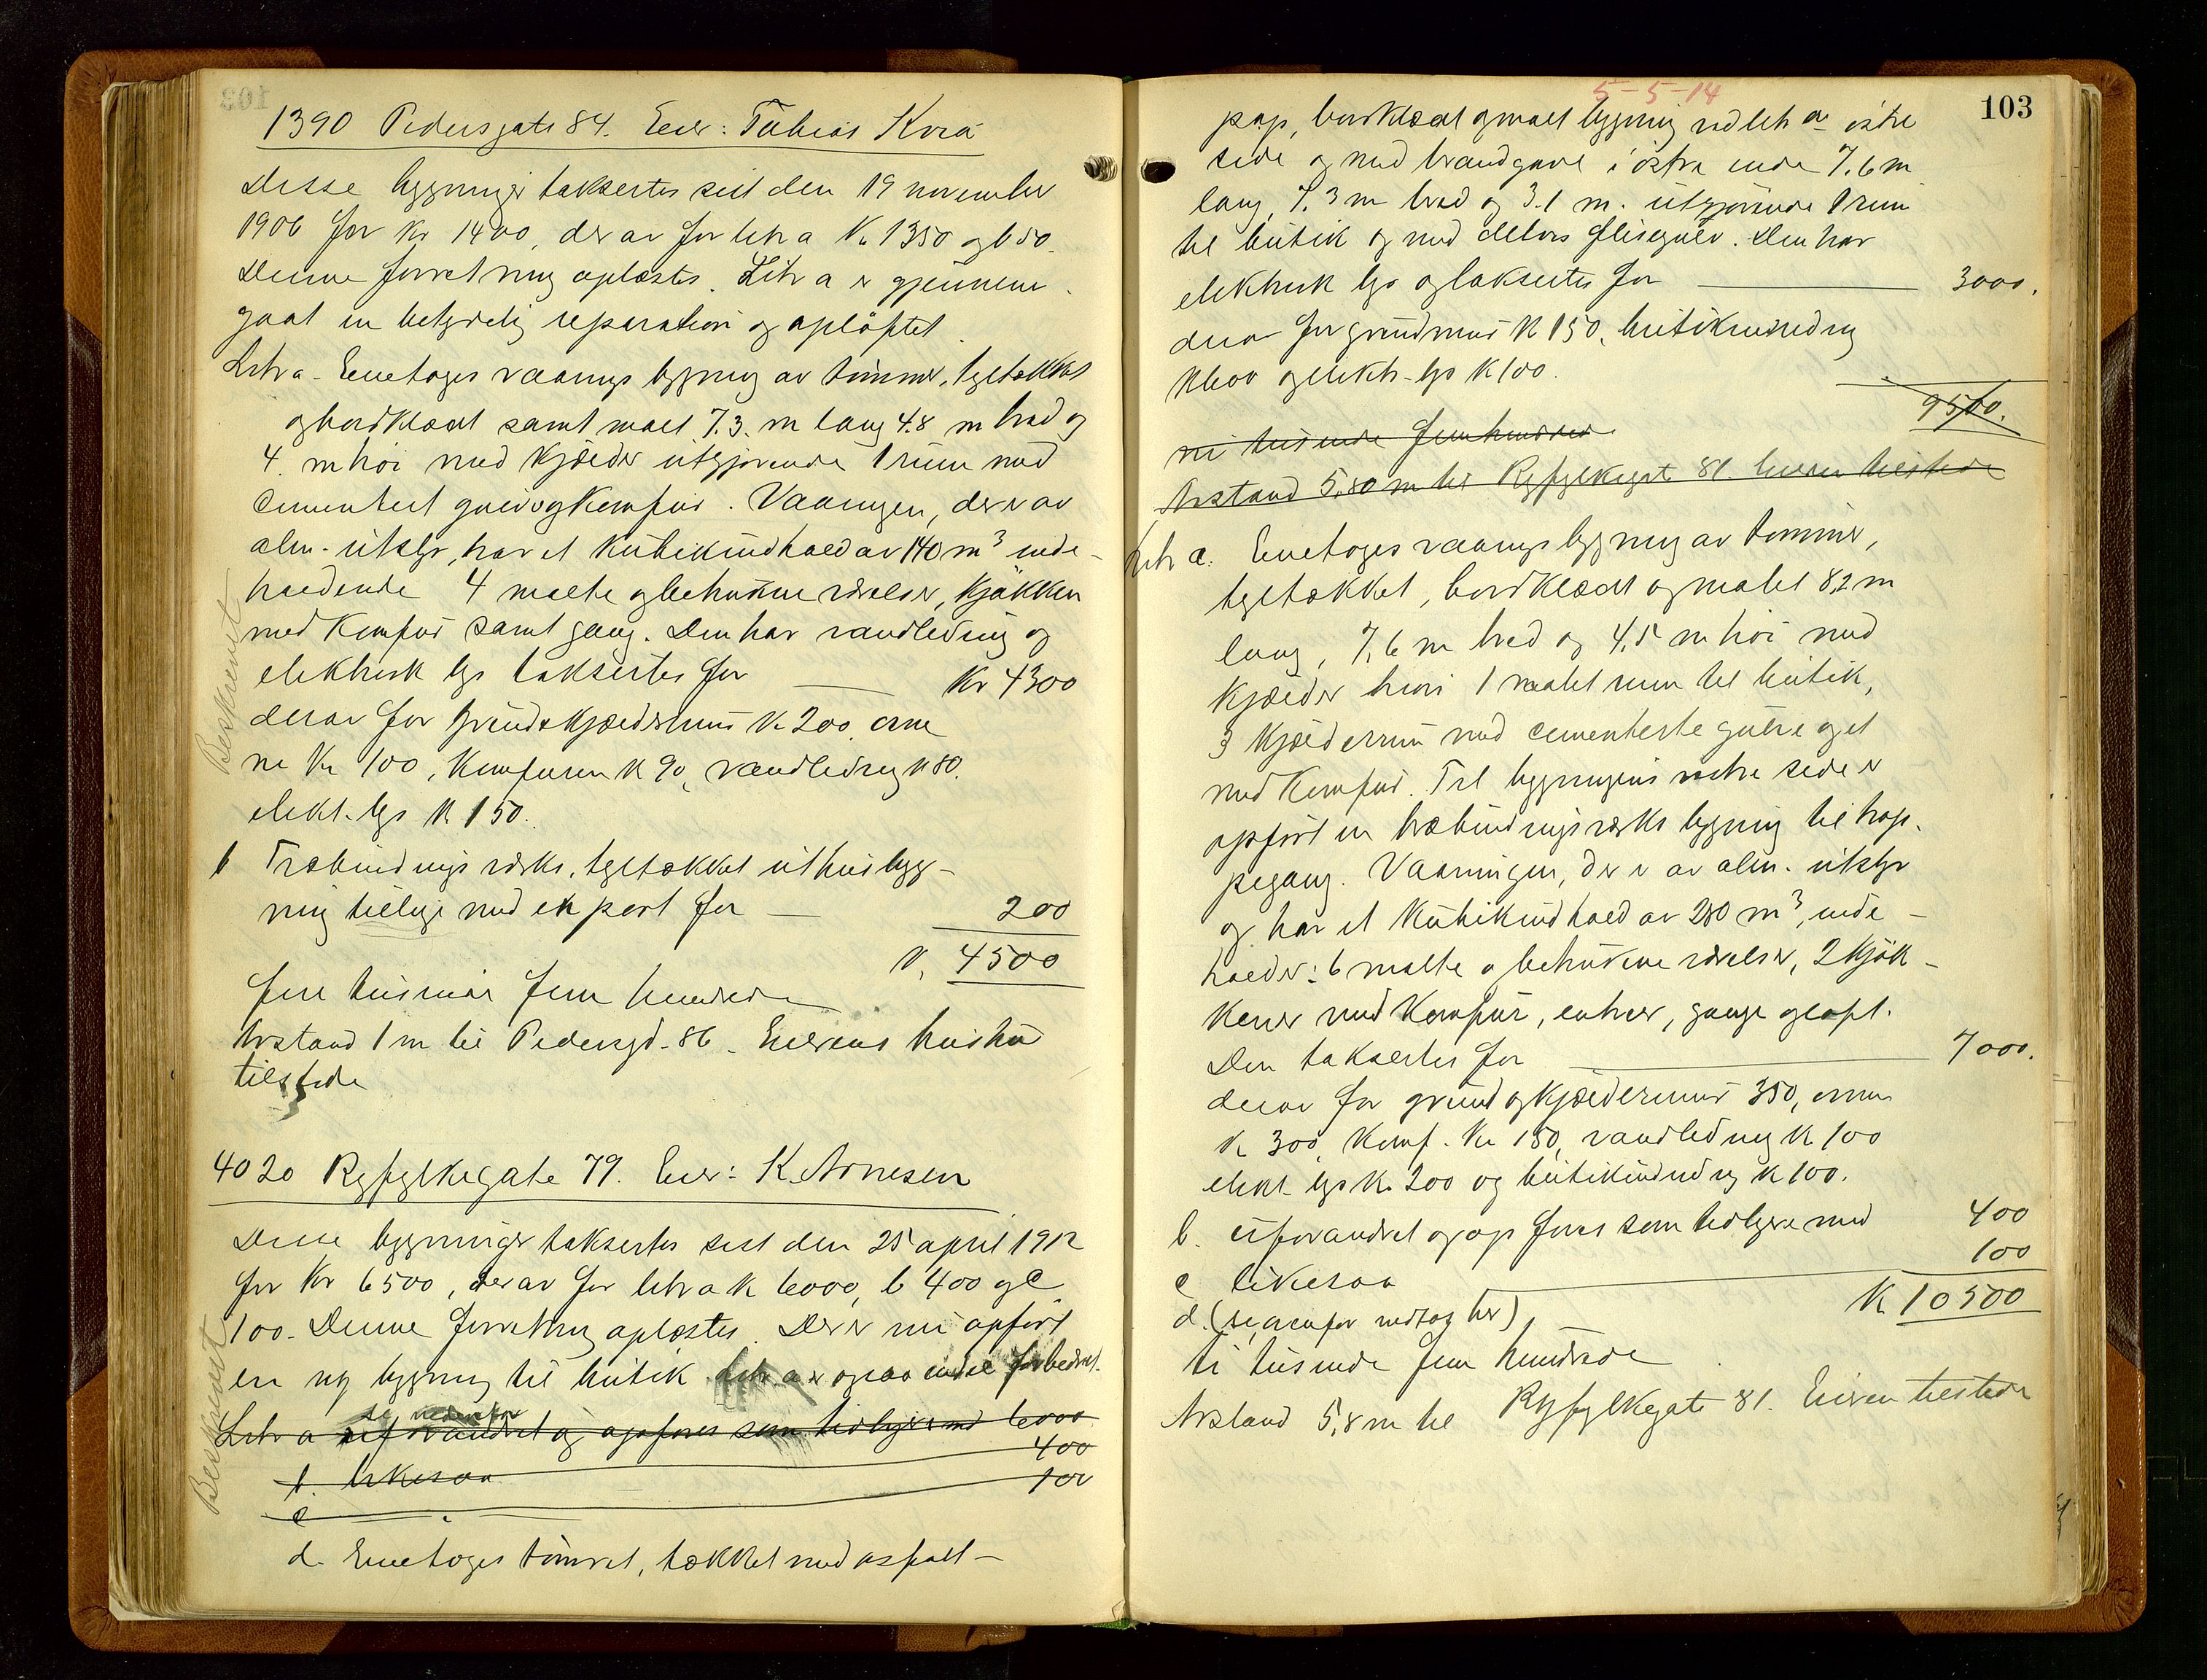 1390 Pedersgate 84. Eier: Tobias Kvia
Disse bygninger taksertes sist den 19 november
1906 for Kr 1400, derav for litr a Kr 1350 og b 50.
Denne forretning oplæstes. Litr a er gjennem
gaat en betydelig reparation og opløftet.
Litr a - Eenetages vaanings bygning av tømmer, tegltækket
og bordklædt samt malt 7.3. m lang 4.8 m bred og
4. m høi med kjælder utgjørende 1 rum med
cementert gulv og komfur. Vaaningen, der er av
alm. utstyr, har et kubikindhold av 140 m³ inde-
holdende 4 malte og betrukne værelser, kjøkken
med komfur samt gang. Den har vandledning og
elektrisk lys taksertes for Kr 4300
derav for grund & kjældermur Kr 200. ovne
ne Kr 100, Komfuren K 90, vandledning K 80.
elekt. lys K 150.
Beskrevet
b Træbindings værks, tegltækket uthusbygg-
ning tillige med en port for 200
K. 4500
fire tusinde fem hundrede
Avstand 1 m til Pedersgd. 86. Eierens hustru
tilstede
4020 Ryfylkegate 79. Eier: K. Arnesen
Disse bygninger taksertes sist den 25 april 1912
for Kr 6500, derav for litr a K 6000, b 400 og c
100. Denne forretning oplæstes. Der er nu opført
en ny bygning til butik litr. a er ogsaa endel forbedret.
se nedenfor
Litr a uforandret og opføres som tidligere med 6000
b. likesaa 400
c 100
Beskrevet
d. Eenetages tømret, tækket med asfalt-
5-5-14
103
pap, bordklædt og malt bygning ved litr a østre
side og med brandgavl i østre ende 7.6 m
lang, 7.3 m bred og 3.1 m. utgjørende 1 rum
til butik og med delvis flisegulv. Den har
elektrisk lys og taksertes for 3000.
derav for grundmur K 150, butikindredning
K 600 og elektr. lys K 100.
9500.
ni tusinde femhundrede
Avstand 5,80 m til Ryfylkegate 81. Eieren tilstede
Litr a. Eenetages vaanings bygning av tømmer,
tegltækket, bordklædt og malet 8,2 m
lang, 7,6 m bred og 4,5 m høi med
kjælder hvori 1 malet rum til butik,
3 kjælderrum med cementerte gulve og et
med komfur. Til bygningens vestre side er
opført en træbindingsværks bygning til trap-
pegang. Vaaningen, der er av alm. utstyr
og har et kubikindhold av 280 m³, inde-
holder: 6 malte & betrukne værelser, 2 kjøk-
kener med Komfur, entreer, gange og loft.
Den taksertes for 7000.
derav for grund og kjældermur 350, ovne
K 300, Komf. Kr 150, vandledning K 100
elekt. lys K. 200 og butikindredning K 100.
b. uforandret og opføres som tidligere med 400
c likesaa 100
d. (se ovenfor nedtag her)
K 10500
ti tusinde fem hundrede
Avstand 5,8 m til Ryfylkegate 81. Eieren tilstede